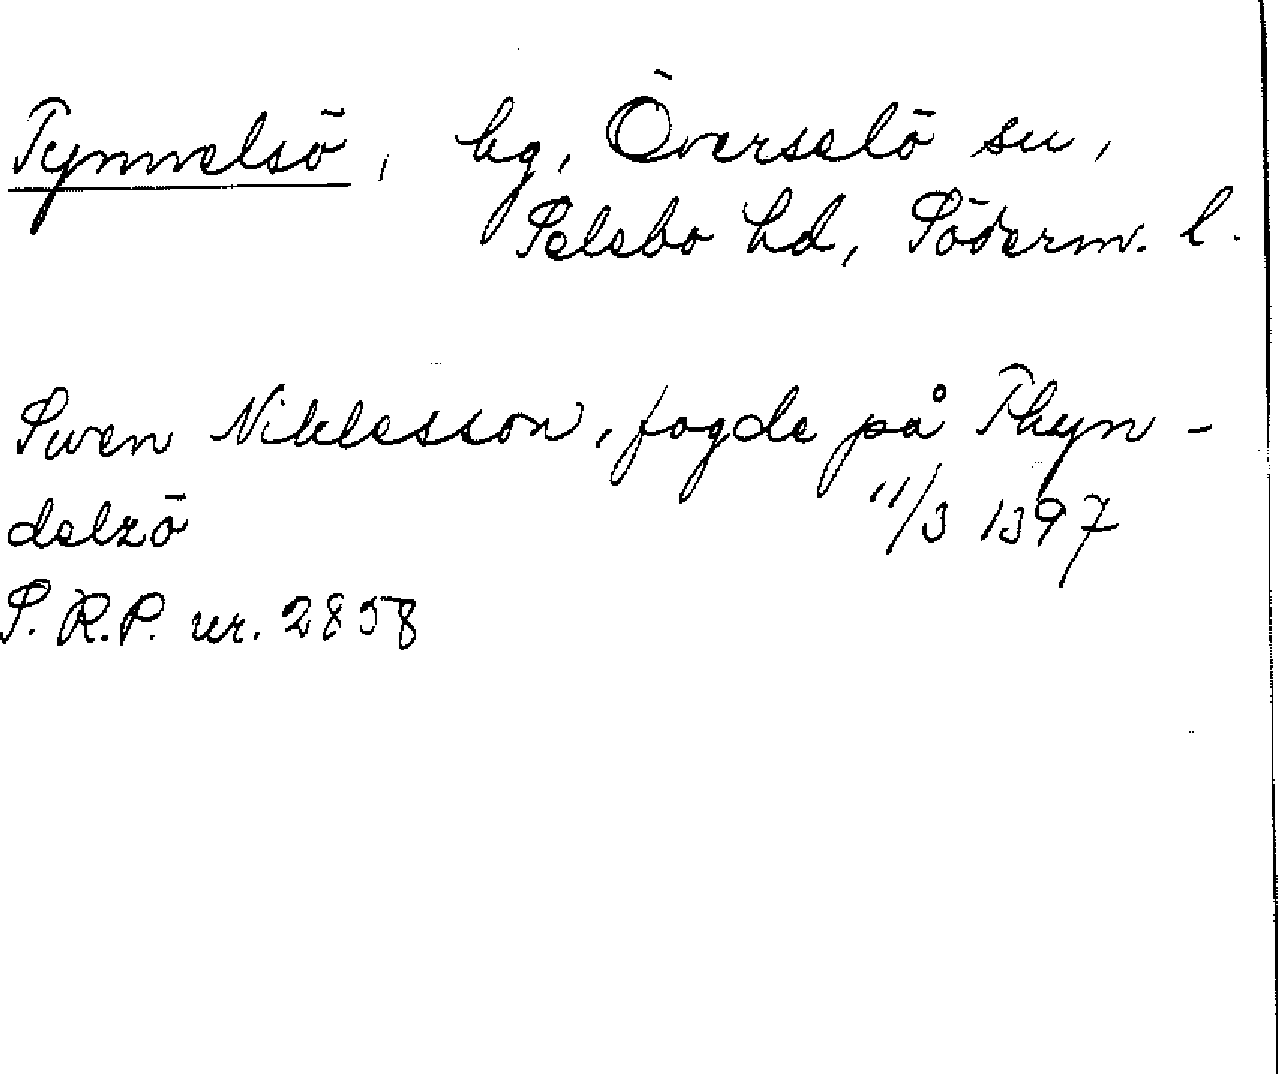 Tynnelsö, hg, Överselö sn,
Selebo hd, Söderm. l.
Swen Niklesson, fogde på Thyn-
delzö 11/3 1397
S.R.P. nr. 2858